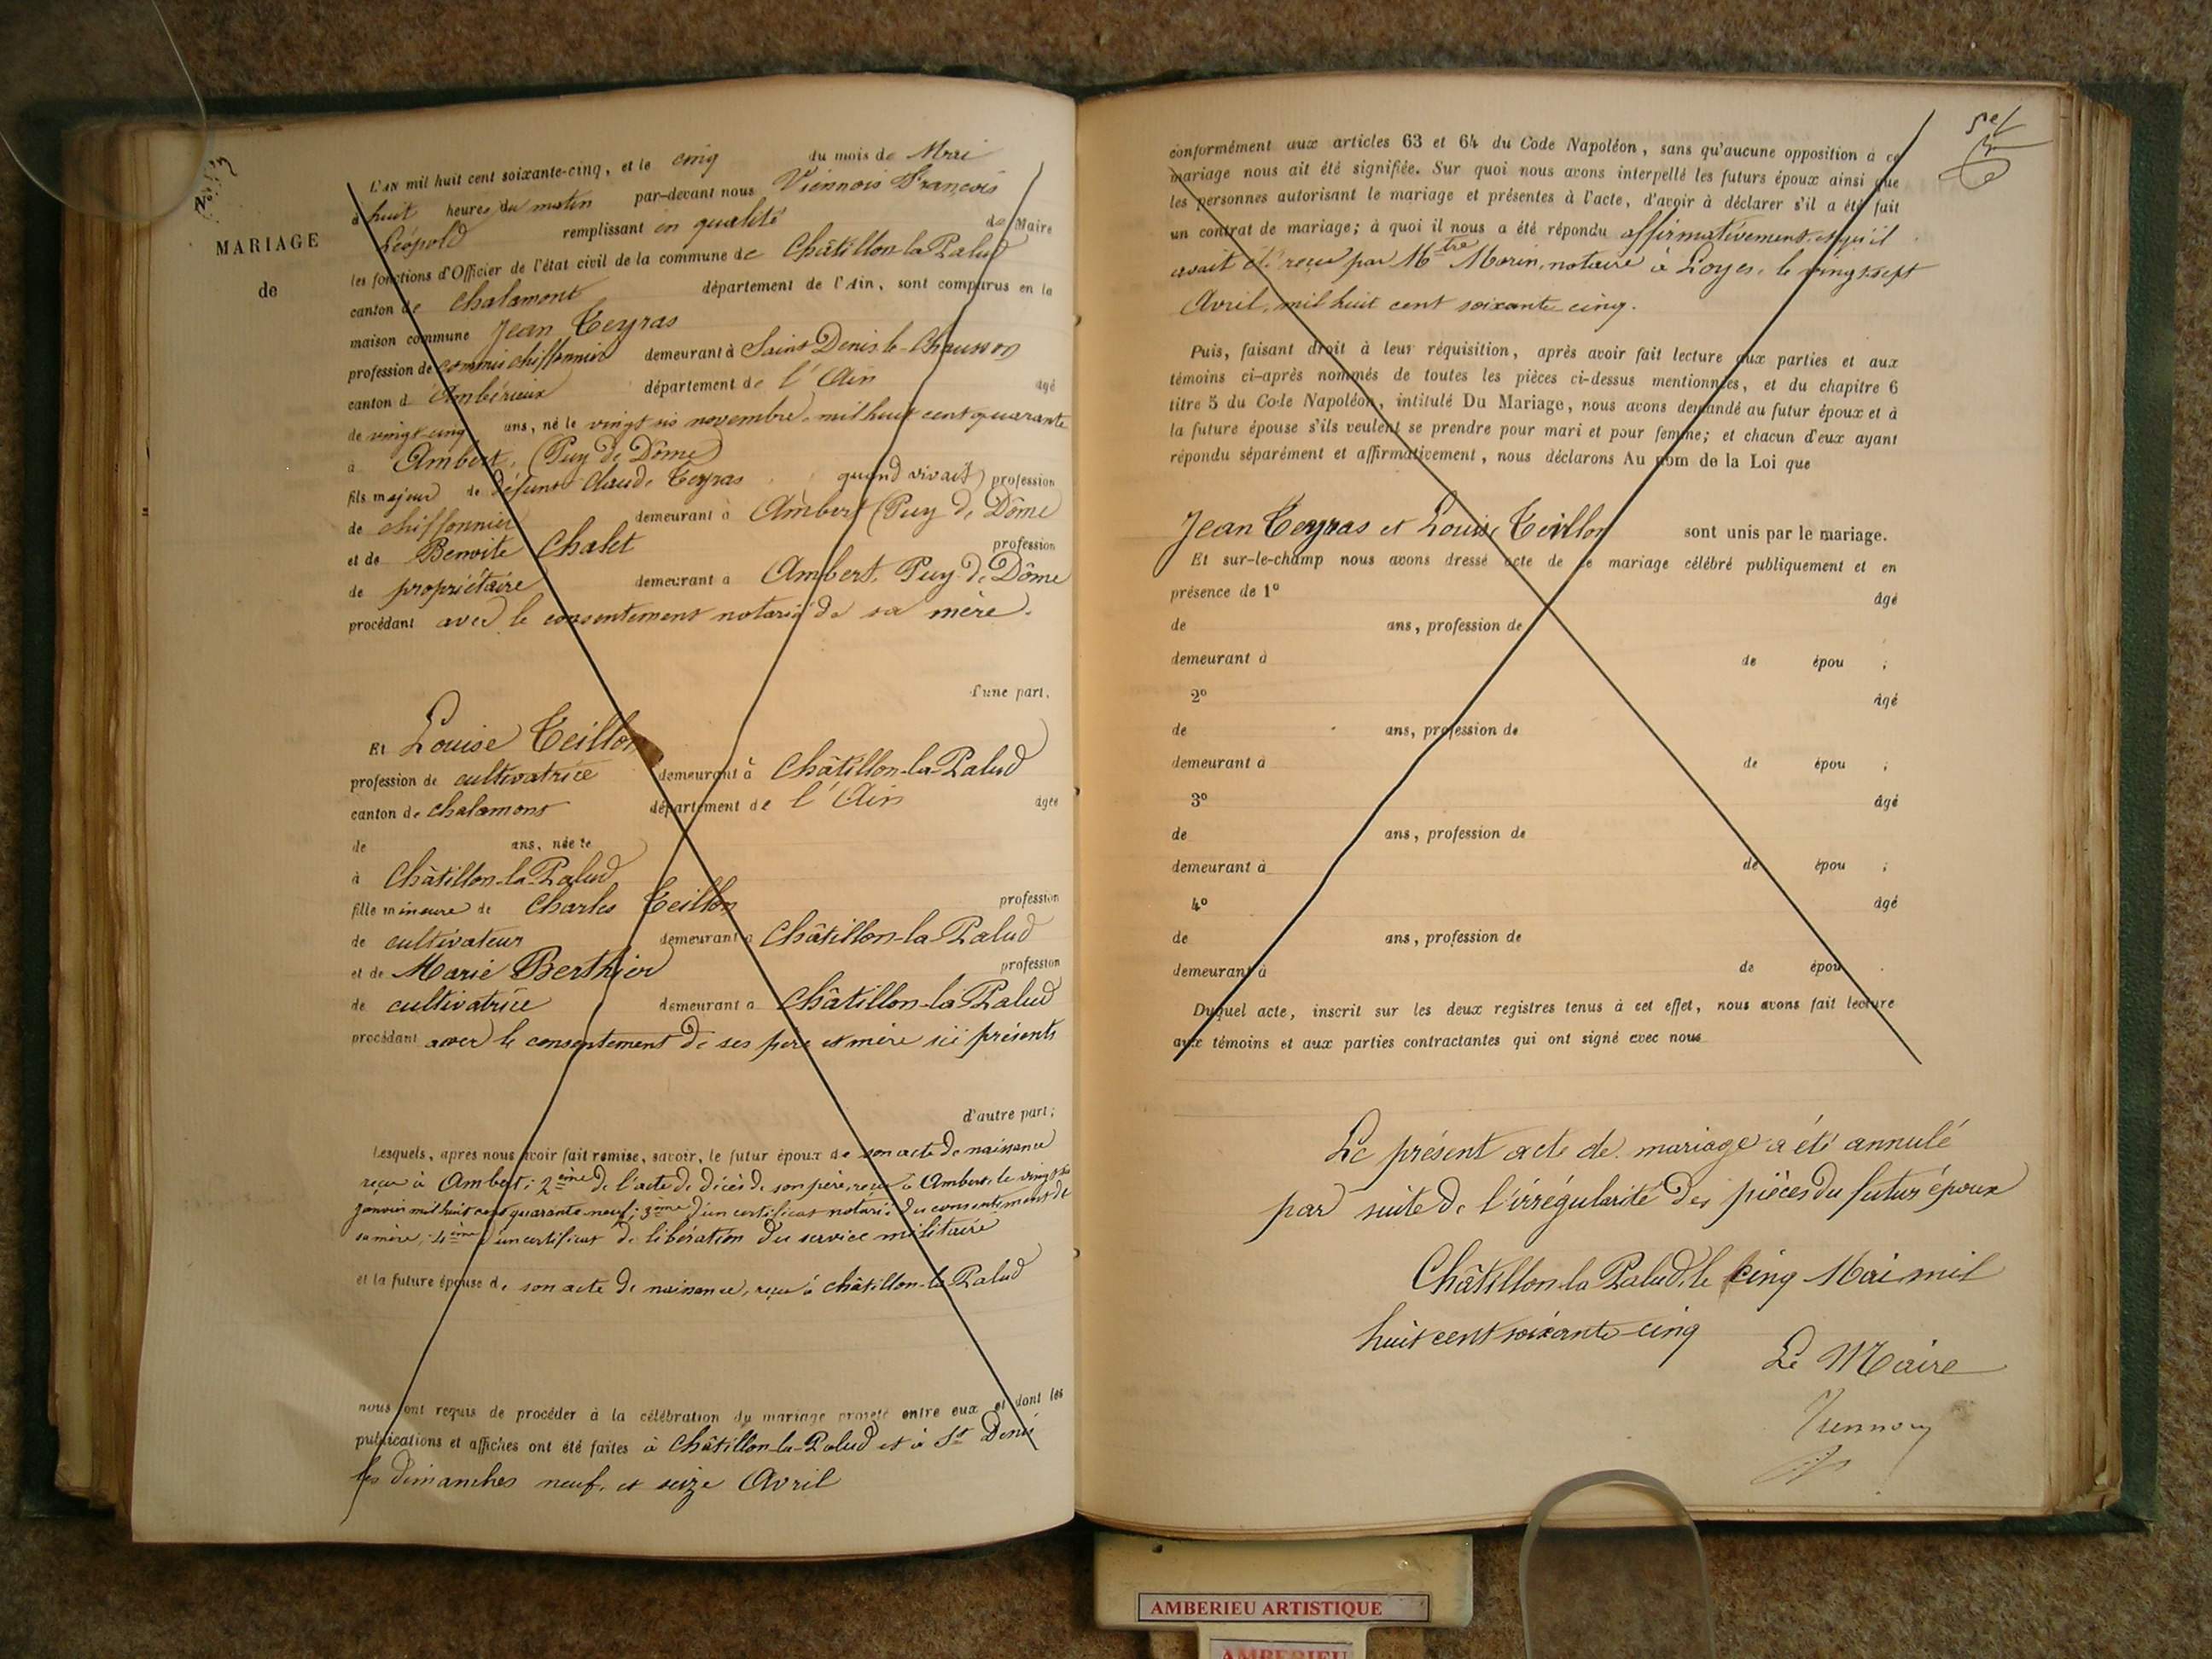 MARIAGE
de
L'AN mil huit cent soixante-cinq, et le cinq du mois de Mai
à huit heures du matin par-devant nous Viennois François
Léopold remplissant en qualité de Maire
les fonctions d'Officier de l'état civil de la commune de Châtillon-la-Palud
canton de Chalamont département de l'Ain, sont comparus en la
maison commune Jean Teyras
profession de commis chiffonnier demeurant à Saint Denis le Chausson
canton d'Ambérieux département de l'Ain âgé
de vingt-cinq ans, né le vingt six novembre, mil huit cent quarante
à Ambert, (Puy de Dôme)
fils majeur de défunt Claude Teyras quand vivait) profession
de chiffonnier demeurant à Ambert (Puy de Dôme
et de Benoite Chalet profession
de propriétaire demeurant à Ambert, Puy-de-Dôme
procédant avec le consentement notarié de sa mère.
d'une part.
Et Louise Teillon
profession de cultivatrice demeurant à Châtillon-la-Palud
canton de Chalamont département de l'Ain âgée
de ans, née le
à Châtillon-la-Palud
fille mineure de Charles Teillon profession
de cultivateur demeurant à Châtillon-la-Palud
et de Marie Berthier profession
de cultivatrice demeurant à Châtillon-la-Palud
procédant avec le consentement de ses père et mère ici présents
d'autre part;
Lesquels, après nous avoir fait remise, savoir, le futur époux de son acte de naissance
reçu à Ambert; 2ème de l'acte de décès de son père, reçu à Ambert, le vingt
janvier mil huit cent quarante-neuf; 3ème d'un certificat notarié du consentement de
sa mère, 4ème d'un certificat de libération du service militaire
et la future épouse de son acte de naissance, reçu à Châtillon-la-Palud
nous ont requis de procéder à la célébration du mariage projeté entre eux et dont les
publications et affiches ont été faites à Châtillon-la-Palud et à St Denis
les dimanches neuf, et seize Avril
conformément aux articles 63 et 64 du Code Napoléon, sans qu'aucune opposition à ce
mariage nous ait été signifiée. Sur quoi nous avons interpellé les futurs époux ainsi que
les personnes autorisant le mariage et présentes à l'acte, d'avoir à déclarer s'il a été fait
un contrat de mariage; à quoi il nous a été répondu affirmativement, et qu'il
avait été reçu par Mtre Morin, notaire à Loyes, le vingt sept
Avril, mil huit cent soixante cinq.
Puis, faisant droit à leur réquisition, après avoir fait lecture aux parties et aux
témoins ci-après nommés de toutes les pièces ci-dessus mentionnées, et du chapitre 6
titre 5 du Code Napoléon, intitulé Du Mariage, nous avons demandé au futur époux et à
la future épouse s'ils veulent se prendre pour mari et pour femme; et chacun d'eux ayant
répondu séparément et affirmativement, nous déclarons Au nom de la Loi que
Jean Teyras et Louise Teillon sont unis par le mariage.
Et sur-le-champ nous avons dressé acte de ce mariage célébré publiquement et en
présence de 1° âgé
de ans, profession de
demeurant à de épou ;
2° âgé
de ans, profession de
demeurant à de épou ;
3° âgé
de ans, profession de
demeurant à de épou ;
4° âgé
de ans, profession de
demeurant à de épou .
Duquel acte, inscrit sur les deux registres tenus à cet effet, nous avons fait lecture
aux témoins et aux parties contractantes qui ont signé avec nous
Le présent acte de mariage a été annulé
par suite de l'irrégularité des pièces du futur époux
Châtillon-la-Palud, le cinq Mai mil
huit cent soixante-cinq
Le Maire
AMBERIEU ARTISTIQUE
AMBERIEU